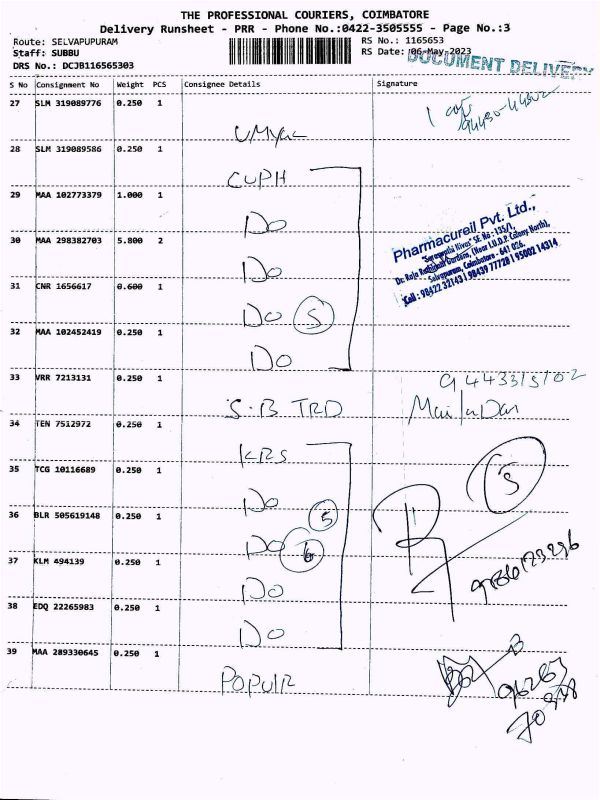 THE PROFESSIONAL COURIERS, COIMBATORE
Delivery Runsheet - PRR - Phone No.:0422-3505555 - Page No.:3
Route: SELVAPUPURAM
Staff: SUBBU
DRS No.: DCJB116565303
RS No.: 1165653
RS Date: 06-May-2023
DOCUMENT DELIVERY
S No Consignment No Weight PCS Consignee Details Signature
27 SLM 319089776 0.250 1
28 SLM 319089586 0.250 1
CUPH
29 MAA 102773379 1.000 1
Do
30 MAA 298382703 5.800 2
Do
31 CNR 1656617 0.600 1
Do 5
32 MAA 102452419 0.250 1
Do
Pharmacureil Pvt. Ltd.,
Selvapuram, Coimbatore - 641 026.
Cell : 98422 32143 | 98439 77728 | 95002 14314
33 VRR 7213131 0.250 1
S.B TRD
34 TEN 7512972 0.250 1
KRS
35 TCG 10116689 0.250 1
Do 5
36 BLR 505619148 0.250 1
Do 6
37 KLM 494139 0.250 1
Do
38 EDQ 22265983 0.250 1
Do
39 MAA 289330645 0.250 1
POPULR